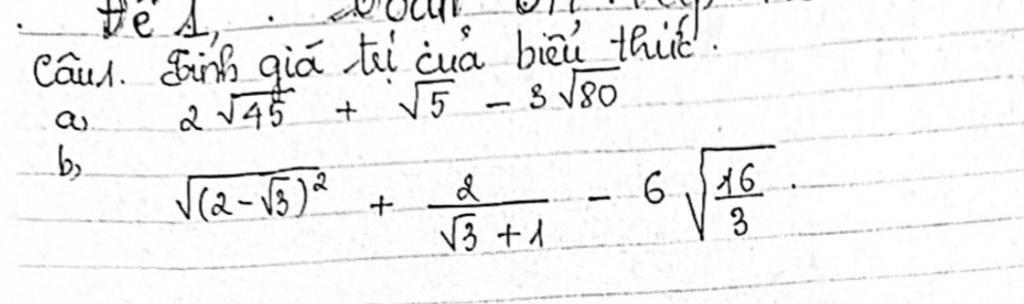 Đề 1,
Câu1. Tính giá trị của biểu thức.
a, 2√45 + √5 - 3√80
b, √(2-√3)² + 2/(√3+1) - 6√(16/3).